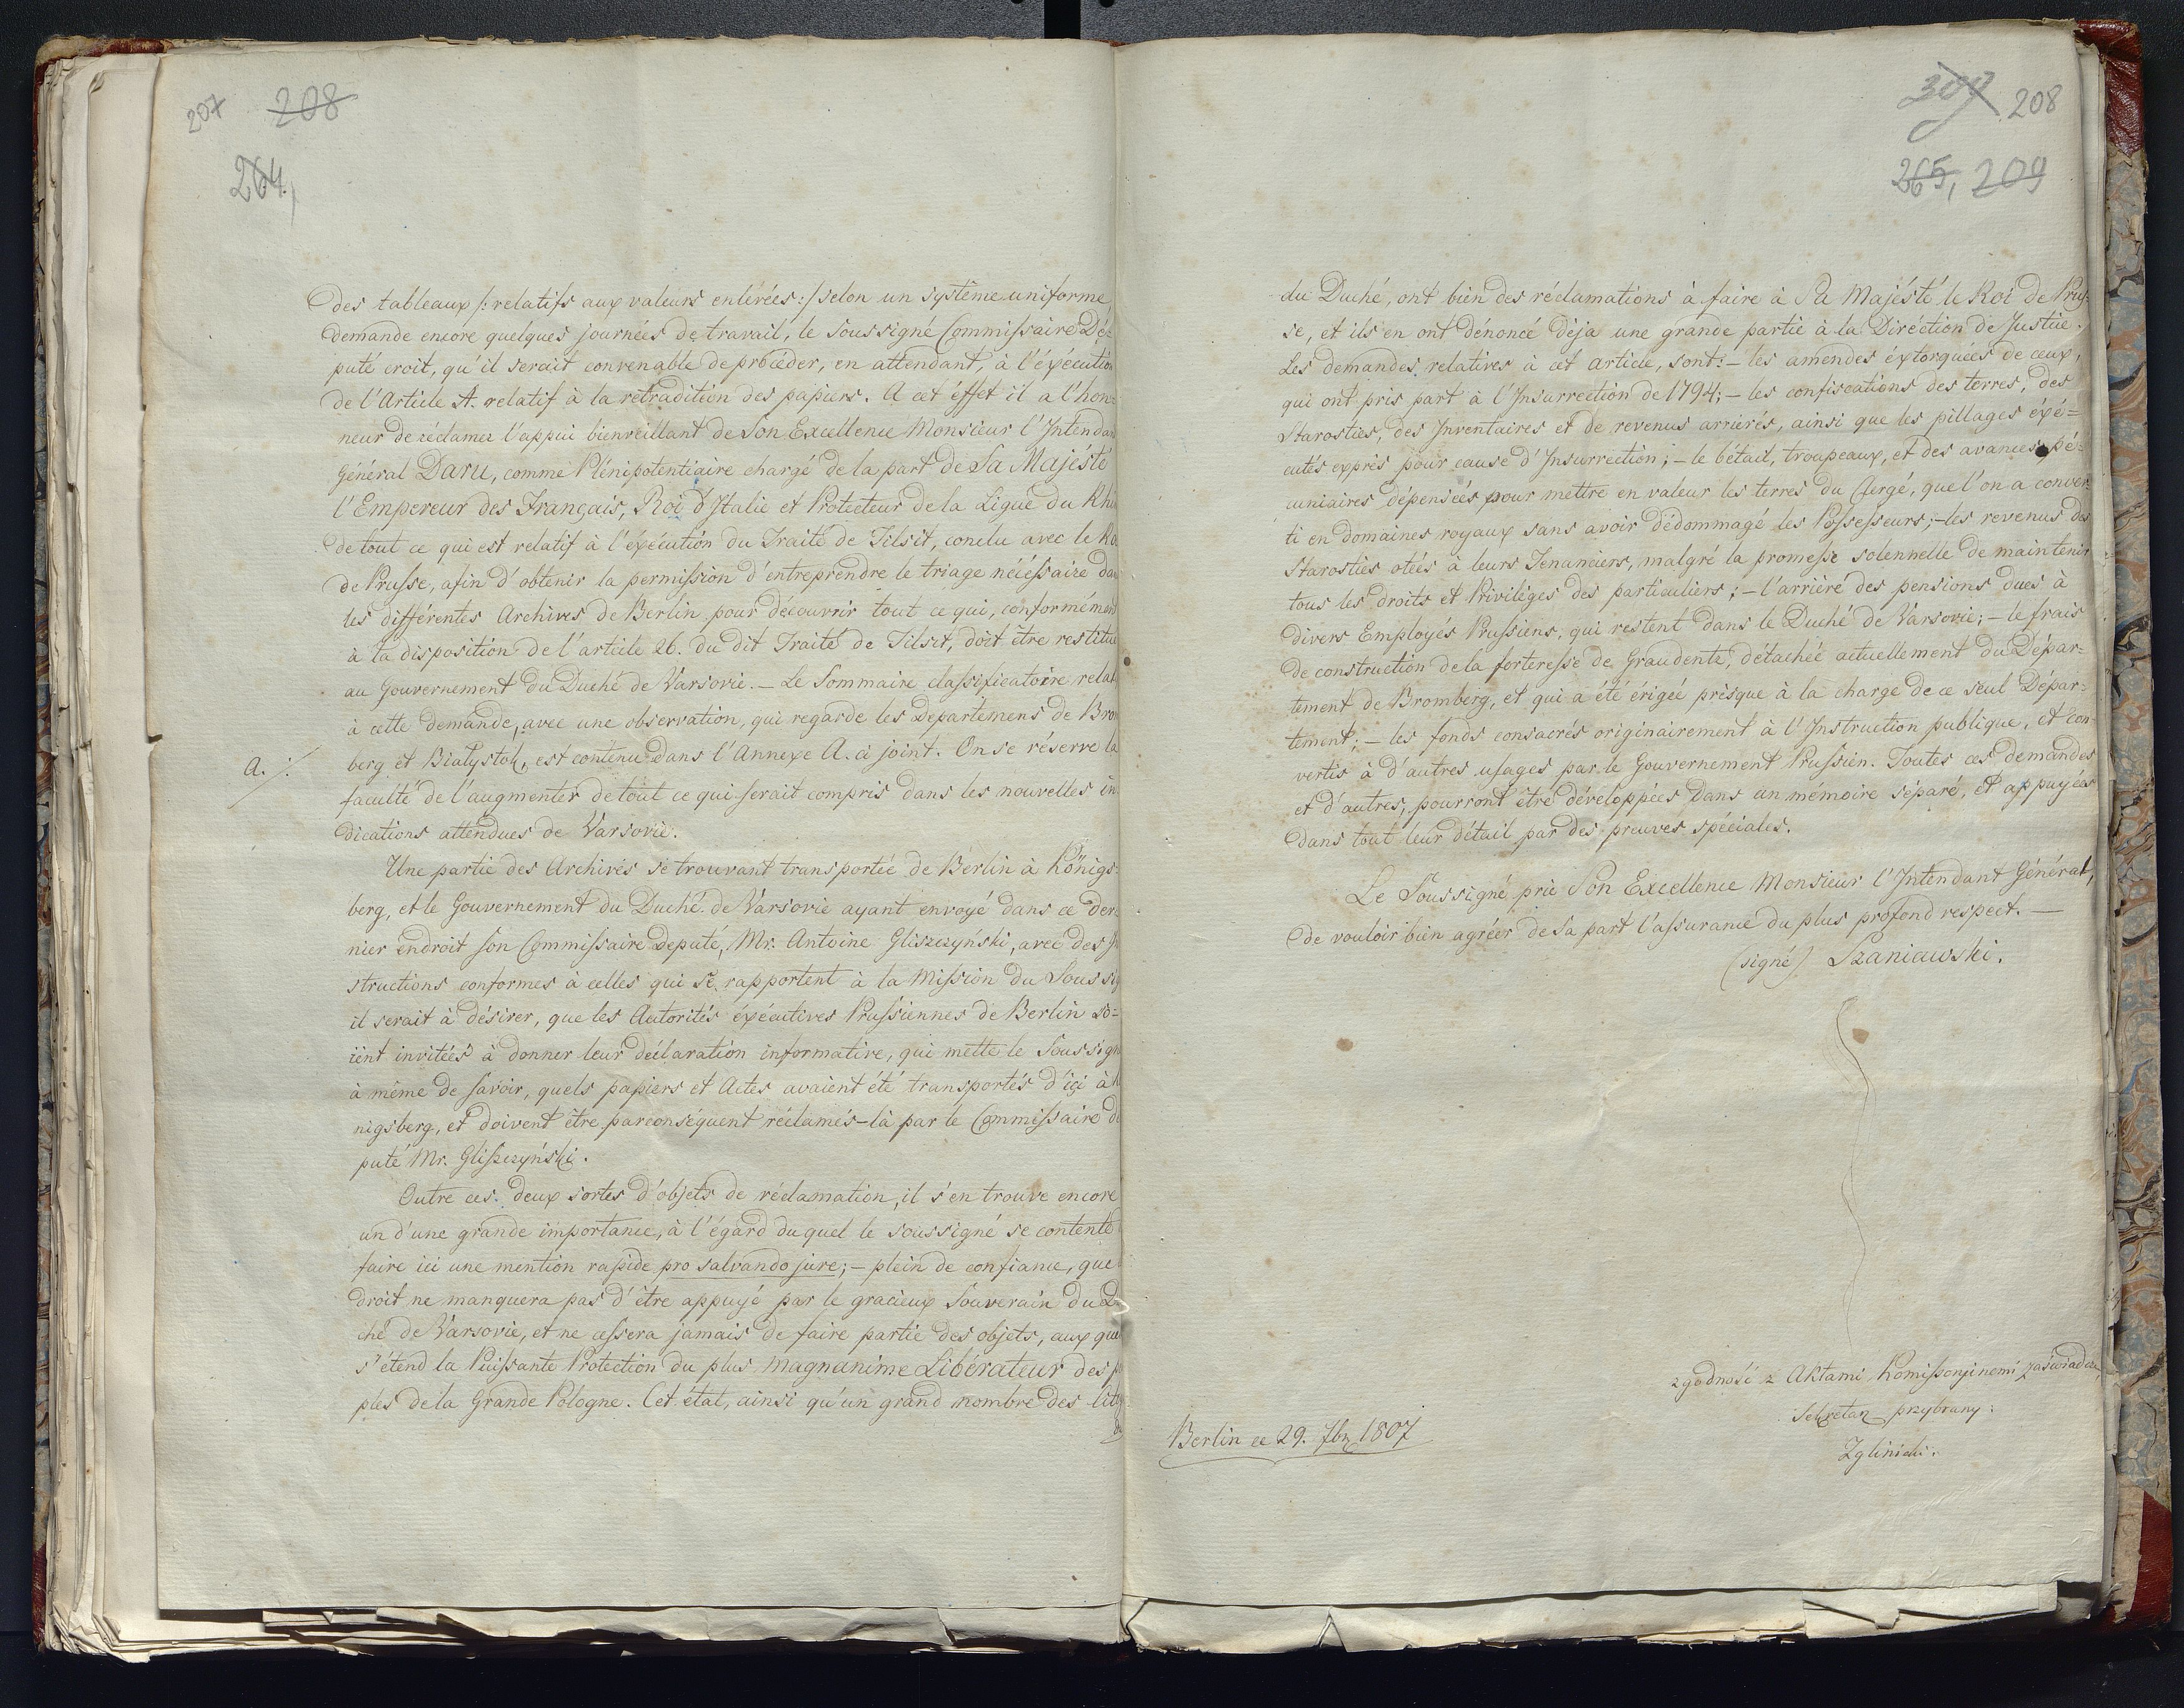 207 208
264,
des tableaux /: relatifs aux valeurs enlevées :/ selon un système uniforme
demande encore quelques journées de travail, le soussigné Commissaire Dé-
puté croit, qu'il serait convenable de procéder, en attendant, à l'éxécution
de l'Article A. relatif à la rétradition des papiers. A cet éffet il a l'hon-
neur de réclamer l'appui bienveillant de Son Excellence Monsieur l'Intendant
Général Daru, comme Plénipotentiaire chargé de la part de Sa Majesté
l'Empereur des Français, Roi d'Italie et Protecteur de la Ligue du Rhin
de tout ce qui est relatif à l'éxécution du Traité de Tilsit, conclu avec le Roi
de Prusse, afin d'obtenir la permission d'entreprendre le triage nécéssaire dans
les différentes Archives de Berlin pour découvrir tout ce qui, conformément
à la disposition de l'article 26. du dit Traité de Tilsit, doit être restitué
au Gouvernement du Duché de Varsovie. — Le Sommaire classificatoire relat
à cette demande, avec une observation, qui regarde les Departemens de Brom
A. ·/. berg et Białystok, est contenu dans l'Annexe A. ci joint. On se réserve la
faculté de l'augmenter de tout ce qui serait compris dans les nouvelles in-
dications attendues de Varsovie.
Une partie des Archives se trouvant transportée de Berlin à Königs-
berg, et le Gouvernement du Duché de Varsovie ayant envoyé dans ce der-
nier endroit son Commissaire Deputé, Mr. Antoine Gliszczyński, avec des In
structions conformes à celles qui se rapportent à la Mission du Soussig
il serait à désirer, que les Autorités éxécutives Prussiennes de Berlin so-
ient invitées à donner leur déclaration informative, qui mette le Soussign
à même de savoir, quels papiers et Actes avaient été transportés d'içi à K
nigsberg, et doivent être parconséquent réclamés-là par le Commissaire de
puté Mr. Gliszczyński.
Outre ces deux sortes d'objets de réclamation, il s'en trouve encore
un d'une grande importance, à l'égard duquel le soussigné se contente
faire ici une mention rapide pro salvando jure; — plein de confiance, que
droit ne manquera pas d'être appuyé par le gracieux Souverain du Du
ché de Varsovie, et ne cessera jamais de faire partie des objets, aux quel
s'étend la Puissante Protection du plus magnanime Libérateur des p
ples de la Grande Pologne. Cet état, ainsi qu'un grand nombre des cito
309 208
265, 209
du Duché, ont bien des réclamations à faire à Sa Majésté le Roi de Prus-
se, et ils en ont dénoncé déja une grande partie à la Diréction de Justice.
Les demandes relatives à cet article, sont: — les amendes éxtorquées de ceux,
qui ont pris part à l'Insurrection de 1794; — les confiscations des terres, des
Starosties, des Inventaires et de revenus arrierés, ainsi que les pillages éxé=
cutés exprès pour cause d'Insurrection; — le bétail, troupeaux, et des avances pé-
cuniaires dépensées pour mettre en valeur les terres du Clergé, que l'on a conver-
ti en domaines royaux sans avoir dédommagé les Possesseurs; — les revenus des
Starosties otées à leurs Tenanciers, malgré la promesse solennelle de maintenir
tous les droits et Privilèges des particuliers; — l'arrièré des pensions dues à
divers Employés Prussiens, qui restent dans le Duché de Varsovie; — le frais
de construction de la forteresse de Graudentz, détachée actuellement du Dépar-
tement de Bromberg, et qui a été érigée présque à la charge de ce seul Dépar-
tement; — les fonds consacrés originairement à l'Instruction publique, et con-
vertis à d'autres usages par le Gouvernement Prussien. Toutes ces demandes
et d'autres, pourront être développées dans un mémoire séparé, et appuyées
dans tout leur détail par des preuves spéciales.
Le Soussigné prie Son Excellence Monsieur l'Intendant Général,
de vouloir bien agréer de sa part l'assurance du plus profond respect. —
(signé) Szaniawski.
zgodność z Aktami Komissyjnemi zaświadcza
Sekretarz przybrany:
Berlin ce 29. 7br 1807
Zgliński.